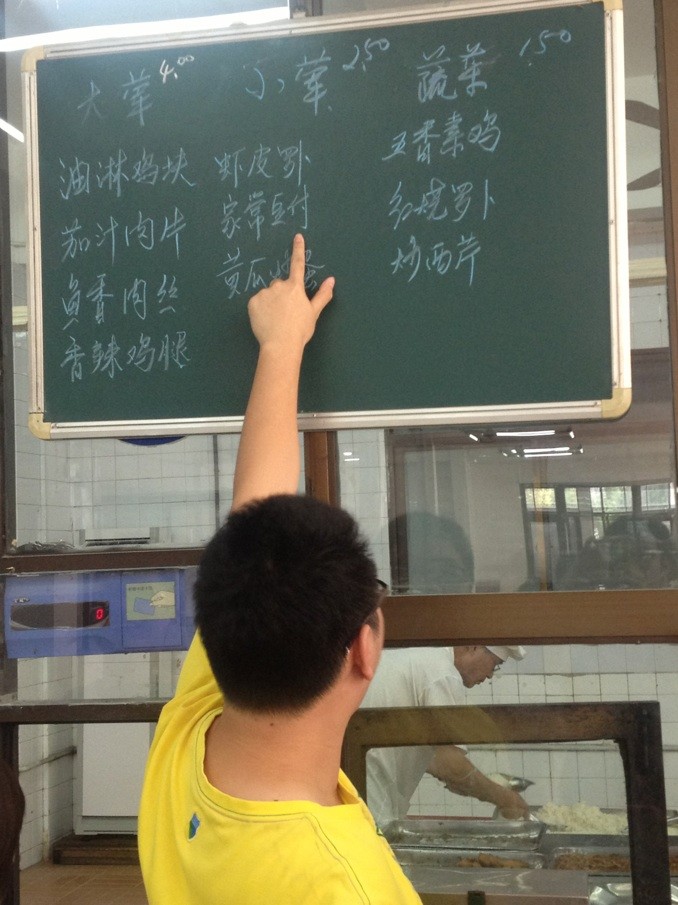 大荤 4.00
油淋鸡块
茄汁肉片
鱼香肉丝
香辣鸡腿
小荤 2.50
虾皮罗卜
家常豆付
黄瓜炒蛋
蔬菜 1.50
五香素鸡
红烧罗卜
炒西芹
0